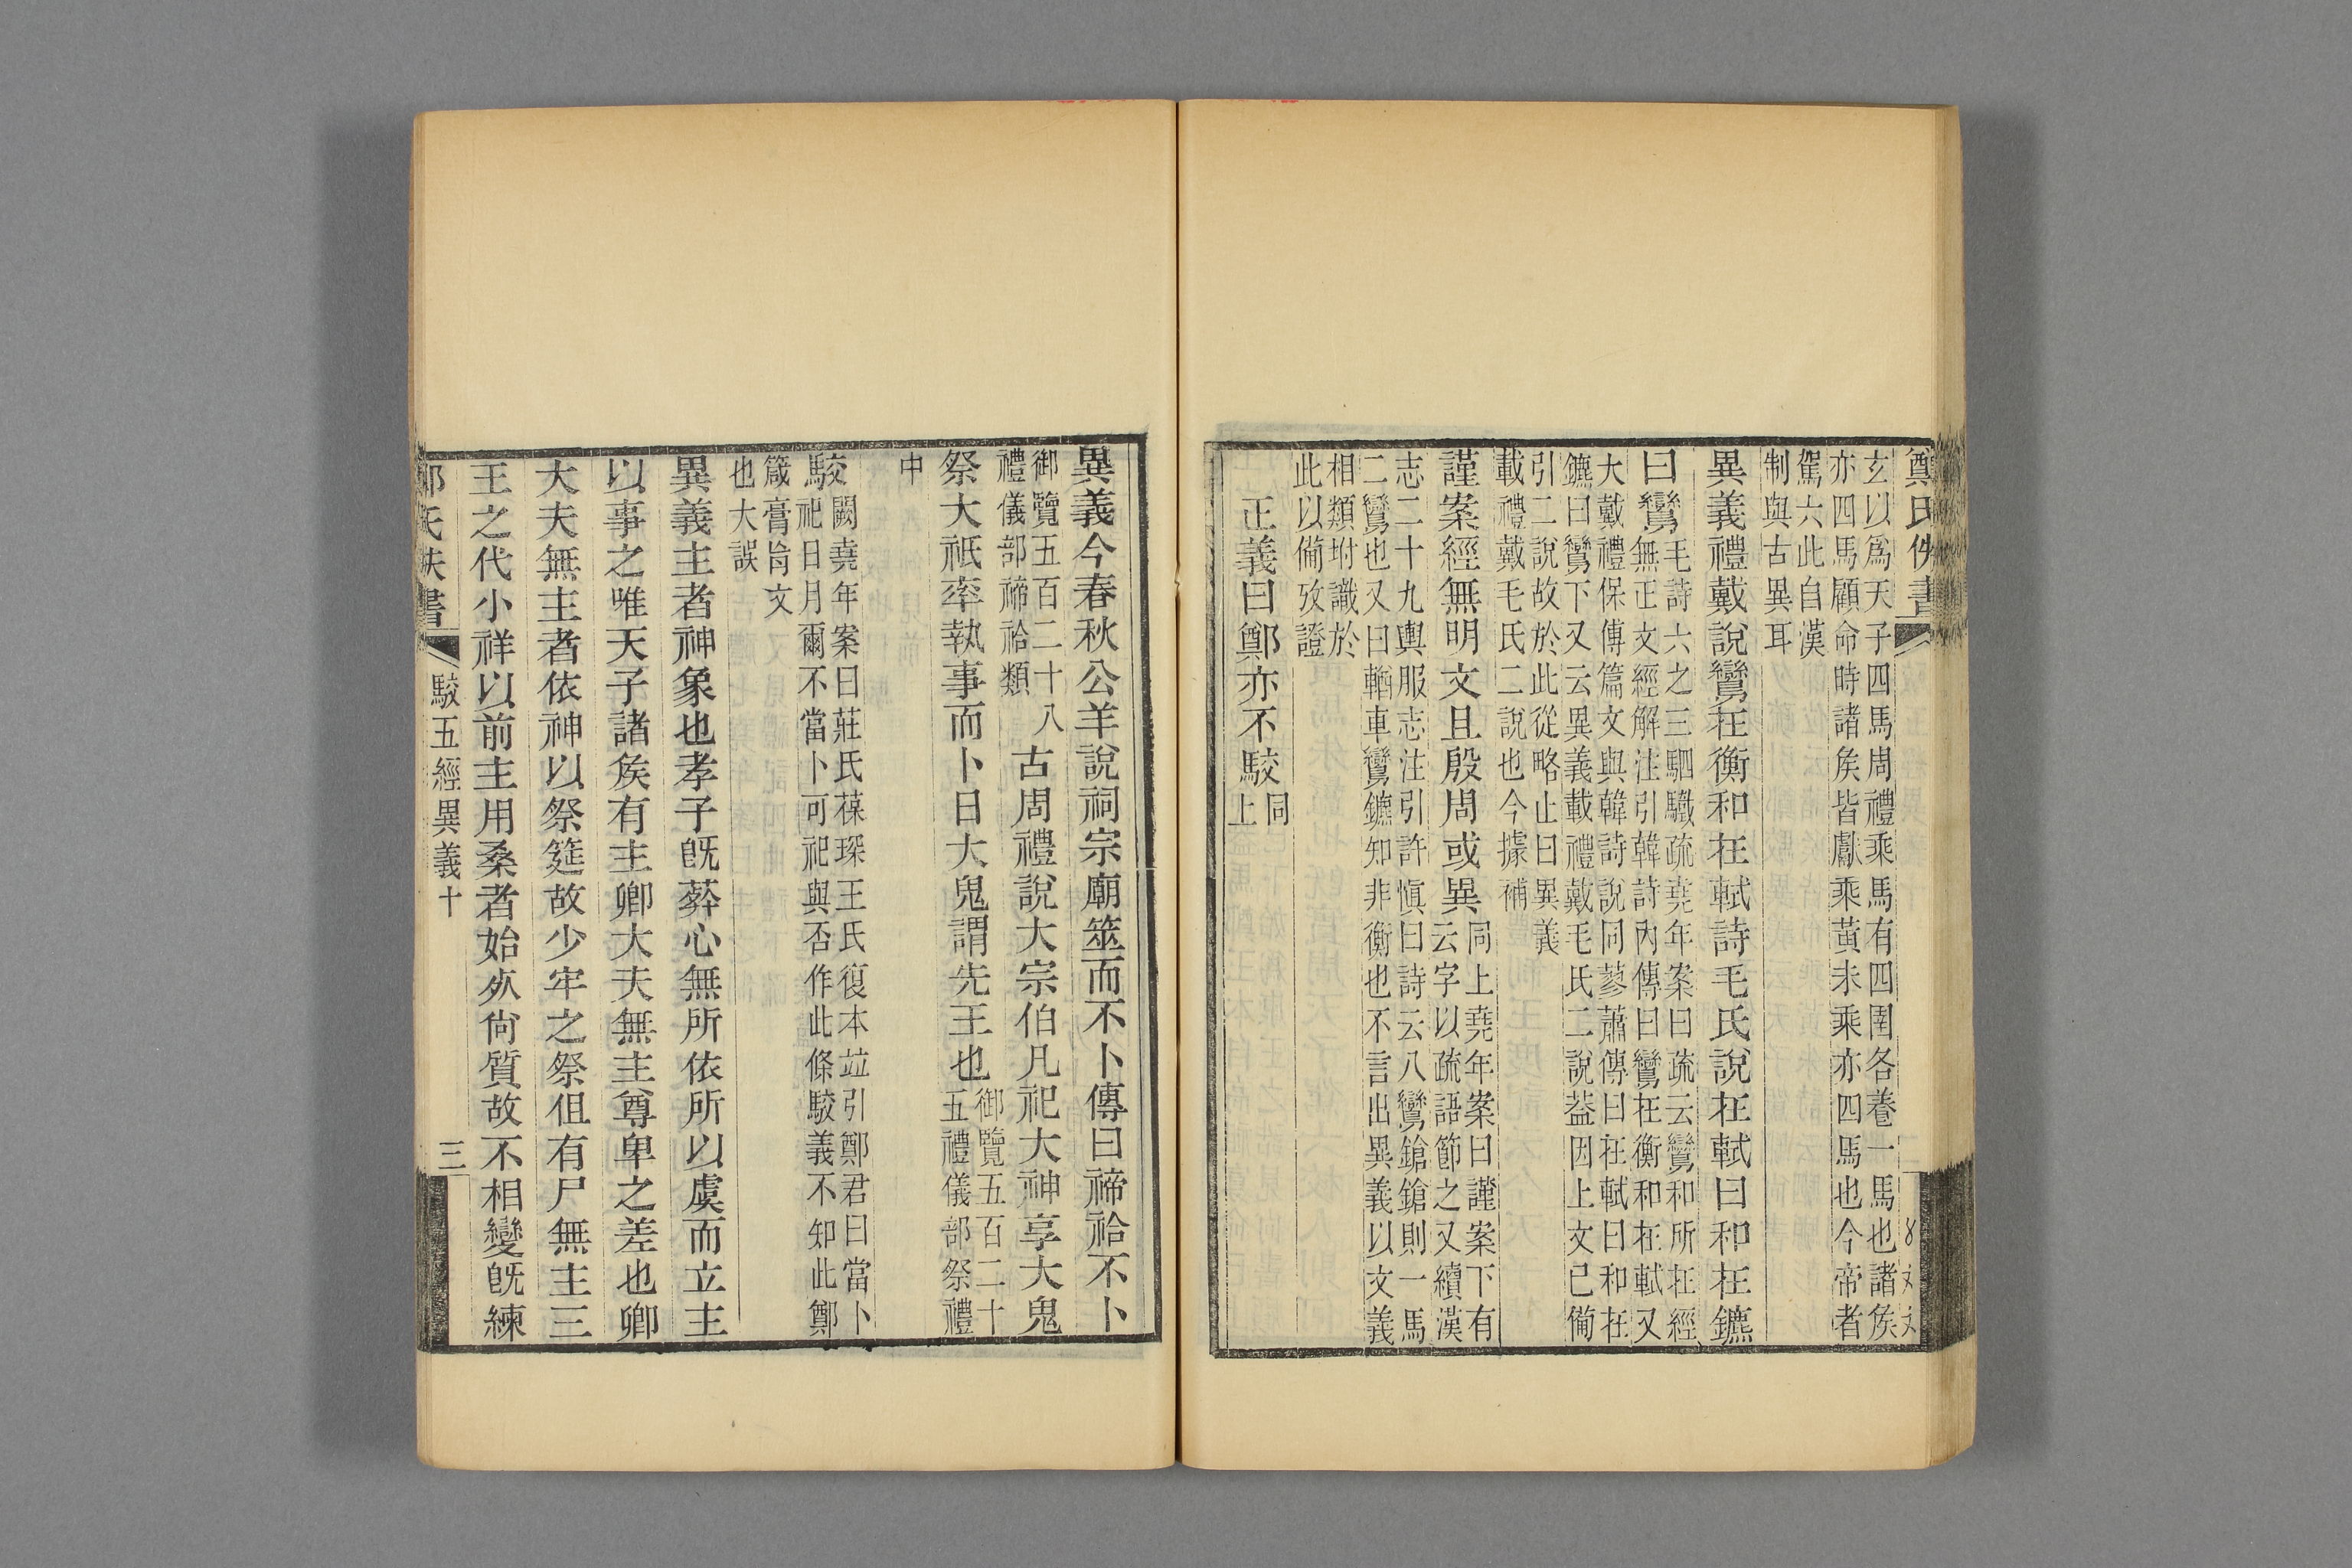 鄭氏佚書
玄以爲天子四馬周禮乘馬有四圉各養一馬也諸矦
亦四馬顧命時諸矦皆獻乘黃朱乘亦四馬也今帝者
駕六此自漢
制與古異耳
異義禮戴說鸞在衡和在軾詩毛氏說在軾曰和在鑣
曰鸞
毛詩六之三駟驖疏堯年案曰疏云鸞和所在經
無正文經解注引韓詩內傳曰鸞在衡和在軾又
大戴禮保傳篇文與韓詩說同蓼蕭傳曰在軾曰和在
鑣曰鸞下又云異義載禮戴毛氏二說葢因上文已僃
引二說故於此從略止曰異義
載禮戴毛氏二說也今據補
謹案經無明文且殷周或異
同上堯年案曰謹案下有
云字以疏語節之又續漢
志二十九輿服志注引許愼曰詩云八鸞鎗鎗則一馬
二鸞也又曰輶車鸞鑣知非衡也不言出異義以文義
相類坿識於
此以僃攷證
正義曰鄭亦不駮
同
上
異義今春秋公羊說祠宗廟筮而不卜傳曰禘祫不卜
御覽五百二十八
禮儀部禘祫類
古周禮說大宗伯凡祀大神享大鬼
祭大祇率執事而卜日大鬼謂先王也
御覽五百二十
五禮儀部祭禮
中
駮
闕堯年案曰莊氏葆琛王氏復本竝引鄭君曰當卜
祀日月爾不當卜可祀與否作此條駮義不知此鄭
箴膏肓文
也大誤
異義主者神象也孝子旣葬心無所依所以虞而立主
以事之唯天子諸矦有主卿大夫無主尊卑之差也卿
大夫無主者依神以祭筵故少牢之祭但有尸無主三
王之代小祥以前主用桑者始死尙質故不相變旣練
氏佚書
駮五經異義十
三